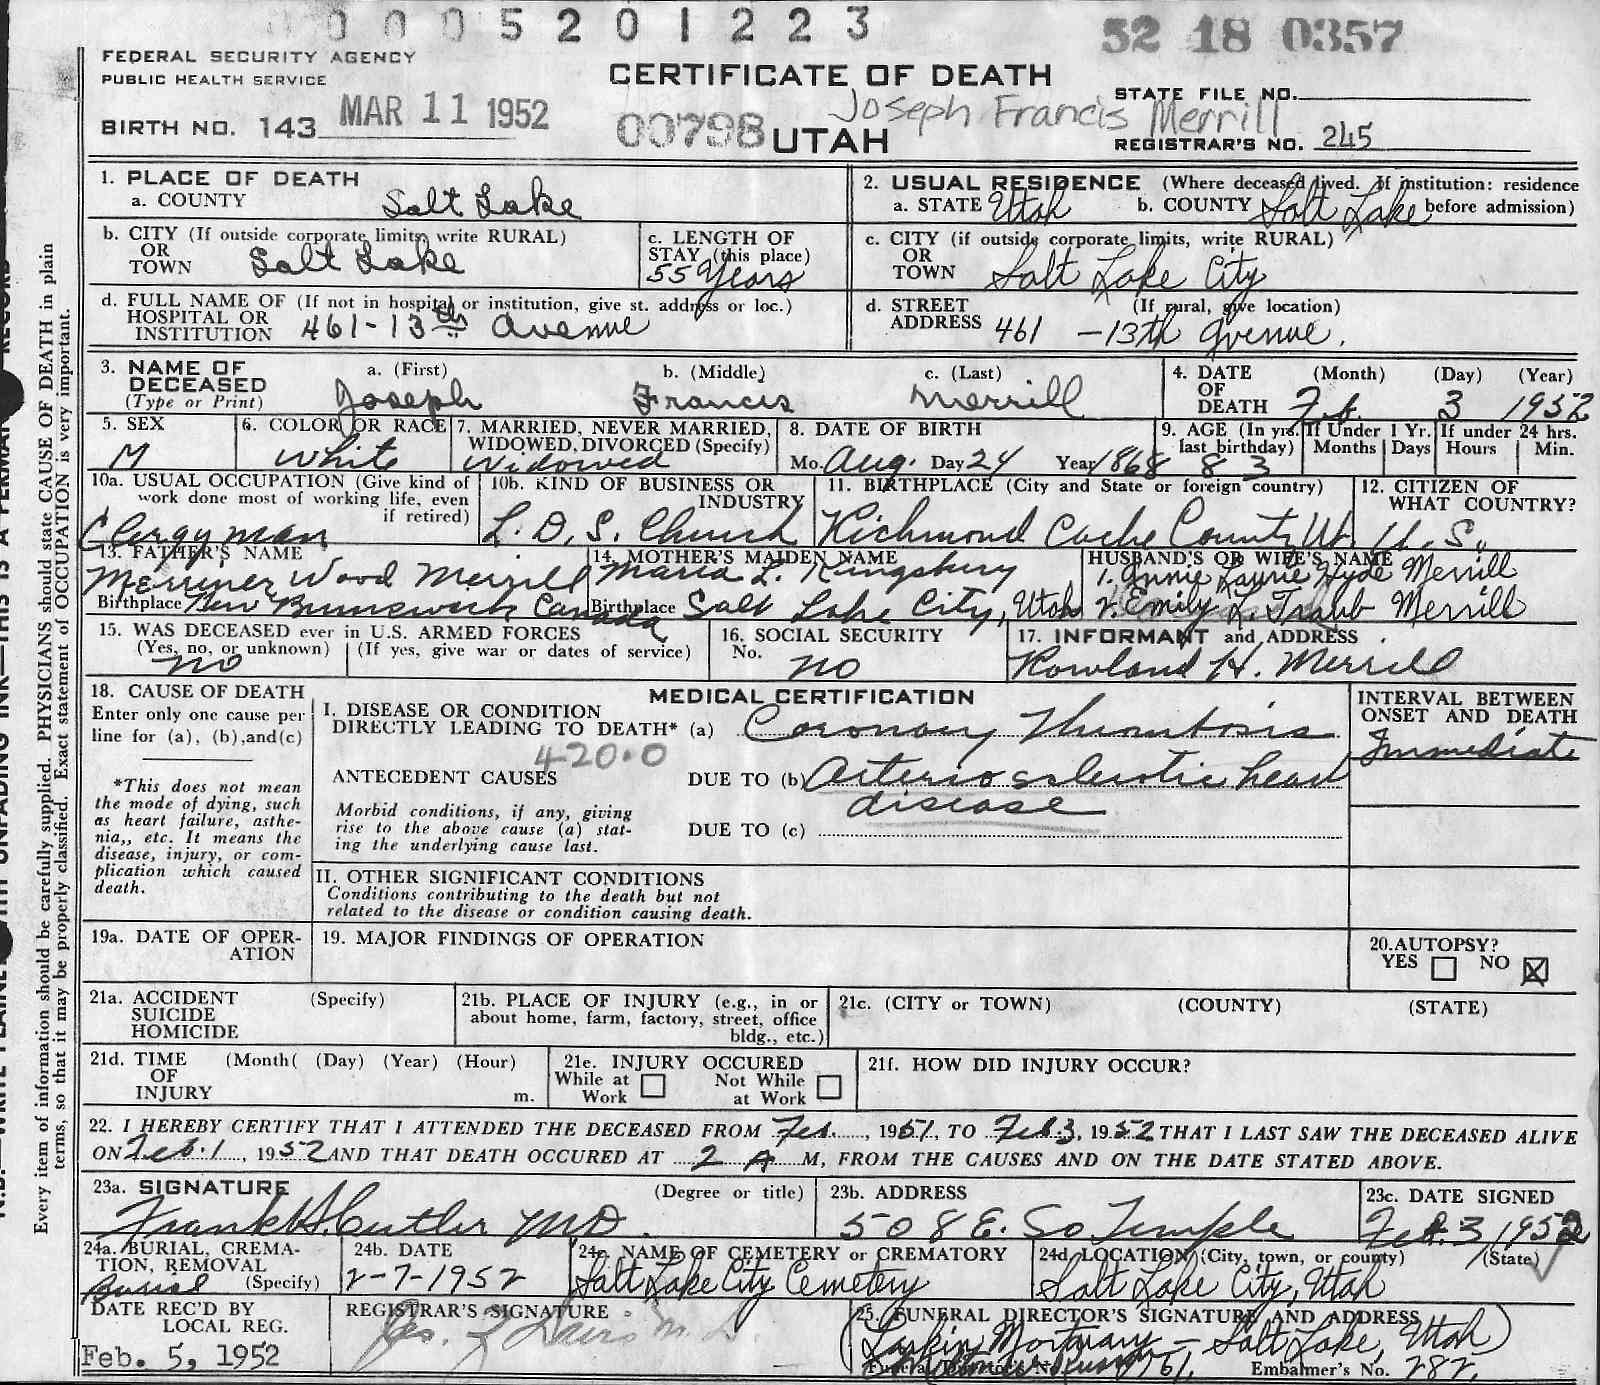 0005201223
52 18 0357
FEDERAL SECURITY AGENCY
PUBLIC HEALTH SERVICE
CERTIFICATE OF DEATH
Joseph Francis Merrill
STATE FILE NO.
BIRTH NO. 143 MAR 11 1952
00798 UTAH
REGISTRAR'S NO. 245
1. PLACE OF DEATH
a. COUNTY Salt Lake
2. USUAL RESIDENCE (Where deceased lived. If institution: residence before admission)
a. STATE Utah b. COUNTY Salt Lake
b. CITY (If outside corporate limits, write RURAL) OR TOWN Salt Lake
c. LENGTH OF STAY (this place) 55 Years
c. CITY (if outside corporate limits, write RURAL) OR TOWN Salt Lake City
d. FULL NAME OF (If not in hospital or institution, give st. address or loc.) HOSPITAL OR INSTITUTION 461-13th Avenue
d. STREET ADDRESS (If rural, give location) 461 -13th Avenue.
3. NAME OF DECEASED (Type or Print)
a. (First) Joseph
b. (Middle) Francis
c. (Last) Merrill
4. DATE OF DEATH (Month) (Day) (Year) Feb. 3 1952
5. SEX M
6. COLOR OR RACE White
7. MARRIED, NEVER MARRIED, WIDOWED, DIVORCED (Specify) Widowed
8. DATE OF BIRTH Mo. Aug. Day 24 Year 1868
9. AGE (In yrs. last birthday) 83
If Under 1 Yr. Months Days
If under 24 hrs. Hours Min.
10a. USUAL OCCUPATION (Give kind of work done most of working life, even if retired) Clergyman
10b. KIND OF BUSINESS OR INDUSTRY L. D. S. Church
11. BIRTHPLACE (City and State or foreign country) Richmond Cache County Ut.
12. CITIZEN OF WHAT COUNTRY? U. S.
13. FATHER'S NAME Merriner Wood Merrill
Birthplace New Brunswick, Canada
14. MOTHER'S MAIDEN NAME Maria L. Kingsbury
Birthplace Salt Lake City, Utah
HUSBAND'S OR WIFE'S NAME
1. Annie Laurie Hyde Merrill
2. Emily L. Traub Merrill
15. WAS DECEASED ever in U.S. ARMED FORCES
(Yes, no, or unknown) (If yes, give war or dates of service)
no
16. SOCIAL SECURITY No. no
17. INFORMANT and ADDRESS
Rowland H. Merrill
18. CAUSE OF DEATH
Enter only one cause per line for (a), (b), and (c)
*This does not mean the mode of dying, such as heart failure, asthenia,, etc. It means the disease, injury, or complication which caused death.
MEDICAL CERTIFICATION
I. DISEASE OR CONDITION DIRECTLY LEADING TO DEATH* (a) Coronary Thrombosis
420.0
ANTECEDENT CAUSES
DUE TO (b) Arteriosclerotic heart disease
Morbid conditions, if any, giving rise to the above cause (a) stating the underlying cause last.
DUE TO (c)
INTERVAL BETWEEN ONSET AND DEATH
Immediate
II. OTHER SIGNIFICANT CONDITIONS
Conditions contributing to the death but not related to the disease or condition causing death.
19a. DATE OF OPERATION
19. MAJOR FINDINGS OF OPERATION
20. AUTOPSY?
YES NO X
21a. ACCIDENT SUICIDE HOMICIDE (Specify)
21b. PLACE OF INJURY (e.g., in or about home, farm, factory, street, office bldg., etc.)
21c. (CITY or TOWN) (COUNTY) (STATE)
21d. TIME OF INJURY (Month( (Day) (Year) (Hour) m.
21e. INJURY OCCURED
While at Work Not While at Work
21f. HOW DID INJURY OCCUR?
22. I HEREBY CERTIFY THAT I ATTENDED THE DECEASED FROM Feb., 1951, TO Feb. 3, 1952 THAT I LAST SAW THE DECEASED ALIVE
ON Feb. 1, 1952 AND THAT DEATH OCCURED AT 2 A M, FROM THE CAUSES AND ON THE DATE STATED ABOVE.
23a. SIGNATURE (Degree or title)
Frank H. Cutler MD.
23b. ADDRESS 508 E. So Temple
23c. DATE SIGNED Feb. 3, 1952
24a. BURIAL, CREMATION, REMOVAL (Specify) Burial
24b. DATE 2-7-1952
24c. NAME OF CEMETERY or CREMATORY Salt Lake City Cemetery
24d LOCATION (City, town, or county) (State)
Salt Lake City, Utah
DATE REC'D BY LOCAL REG.
Feb. 5, 1952
REGISTRAR'S SIGNATURE
25. FUNERAL DIRECTOR'S SIGNATURE AND ADDRESS
Larkin Mortuary - Salt Lake, Utah
Embalmer's No. 282.
Every item of information should be carefully supplied. PHYSICIANS should state CAUSE OF DEATH in plain
terms, so that it may be properly classified. Exact statement of OCCUPATION is very important.